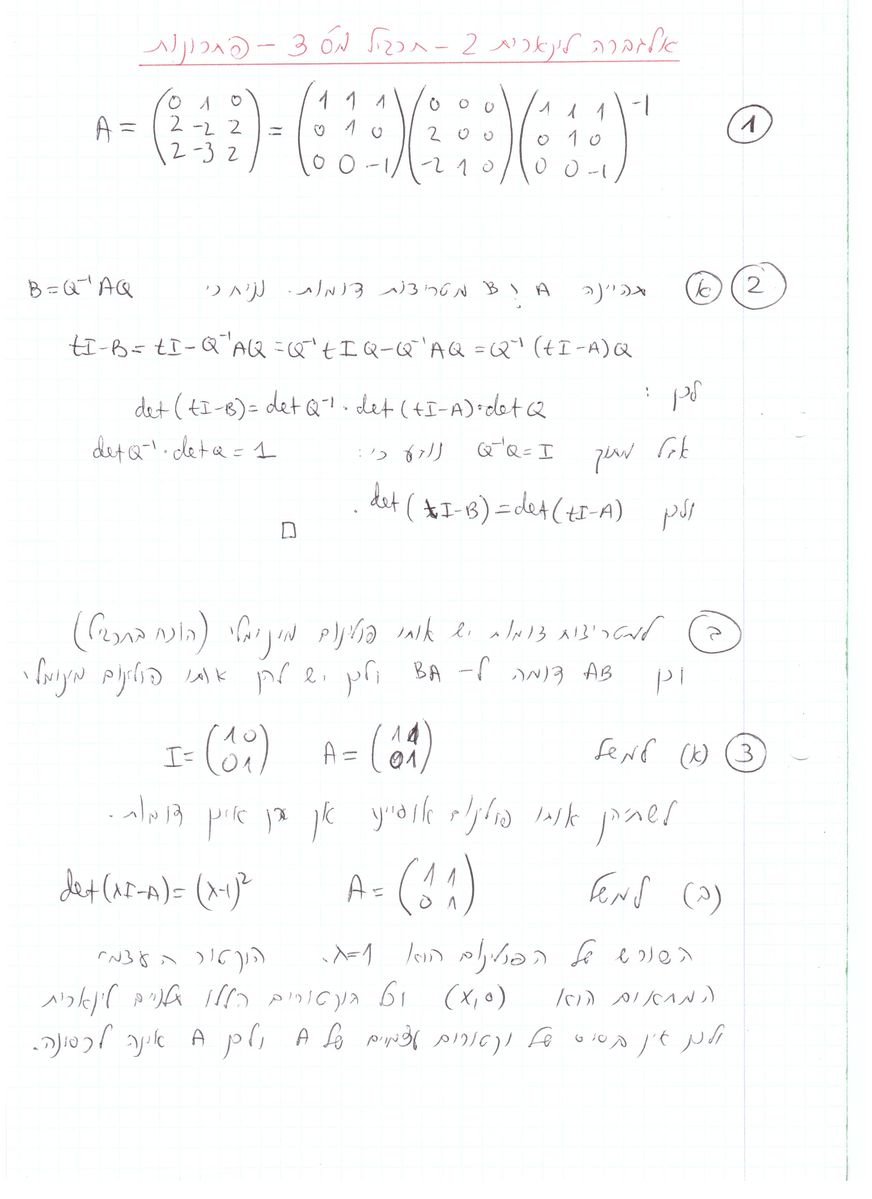 אלגברה לינארית 2 - תרגיל מס 3 - פתרונות
① A = (0 1 0 ; 2 -2 2 ; 2 -3 2) = (1 1 1 ; 0 1 0 ; 0 0 -1) (0 0 0 ; 2 0 0 ; -2 1 0) (1 1 1 ; 0 1 0 ; 0 0 -1)⁻¹
② (א) תהיינה A ו B מטריצות דומות. נניח כי B=Q⁻¹AQ
tI-B = tI-Q⁻¹AQ = Q⁻¹tIQ-Q⁻¹AQ = Q⁻¹(tI-A)Q
לכן: det(tI-B) = detQ⁻¹·det(tI-A)·detQ
אבל מתוך Q⁻¹Q=I נודע כי: detQ⁻¹·detQ = 1
ולכן det(tI-B) = det(tI-A).
□
(ב) למטריצות דומות יש אותו פולינום מינימלי (הוכח בתרגיל)
וכן AB דומה ל-BA ולכן יש להן אותו פולינום מינימלי
③ (א) למשל A = (1 1 ; 0 1) I = (1 0 ; 0 1)
לשתיהן אותו פולינום אופייני אך הן אינן דומות.
(ב) למשל A = (1 1 ; 0 1) det(λI-A) = (λ-1)²
השורש של הפולינום הוא λ=1. הוקטור העצמי
המתאים הוא (x,0) וכל הוקטורים הללו תלויים לינארית
ולכן אין בסיס של וקטורים עצמיים של A ולכן A אינה לכסינה.